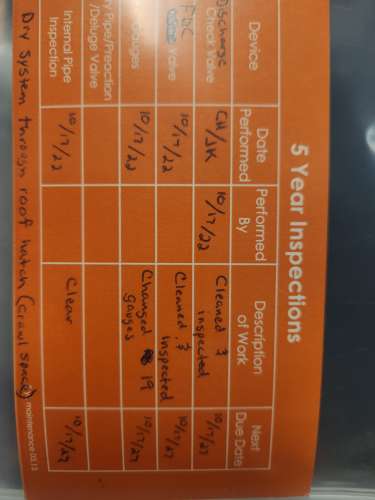 5 Year Inspections
Device Date Performed Performed By Description of Work Next Due Date
Discharge Check Valve CH/JK 10/17/22 Cleaned & inspected 10/17/27
FDC Valve 10/17/22 Cleaned & inspected 10/17/27
Gauges 10/17/22 Changed 19 gauges 10/17/27
Pipe/Preaction /Deluge Valve
Internal Pipe Inspection 10/17/22 Clear 10/17/27
Dry System through roof hatch (crawl space)
maintenance 03.13